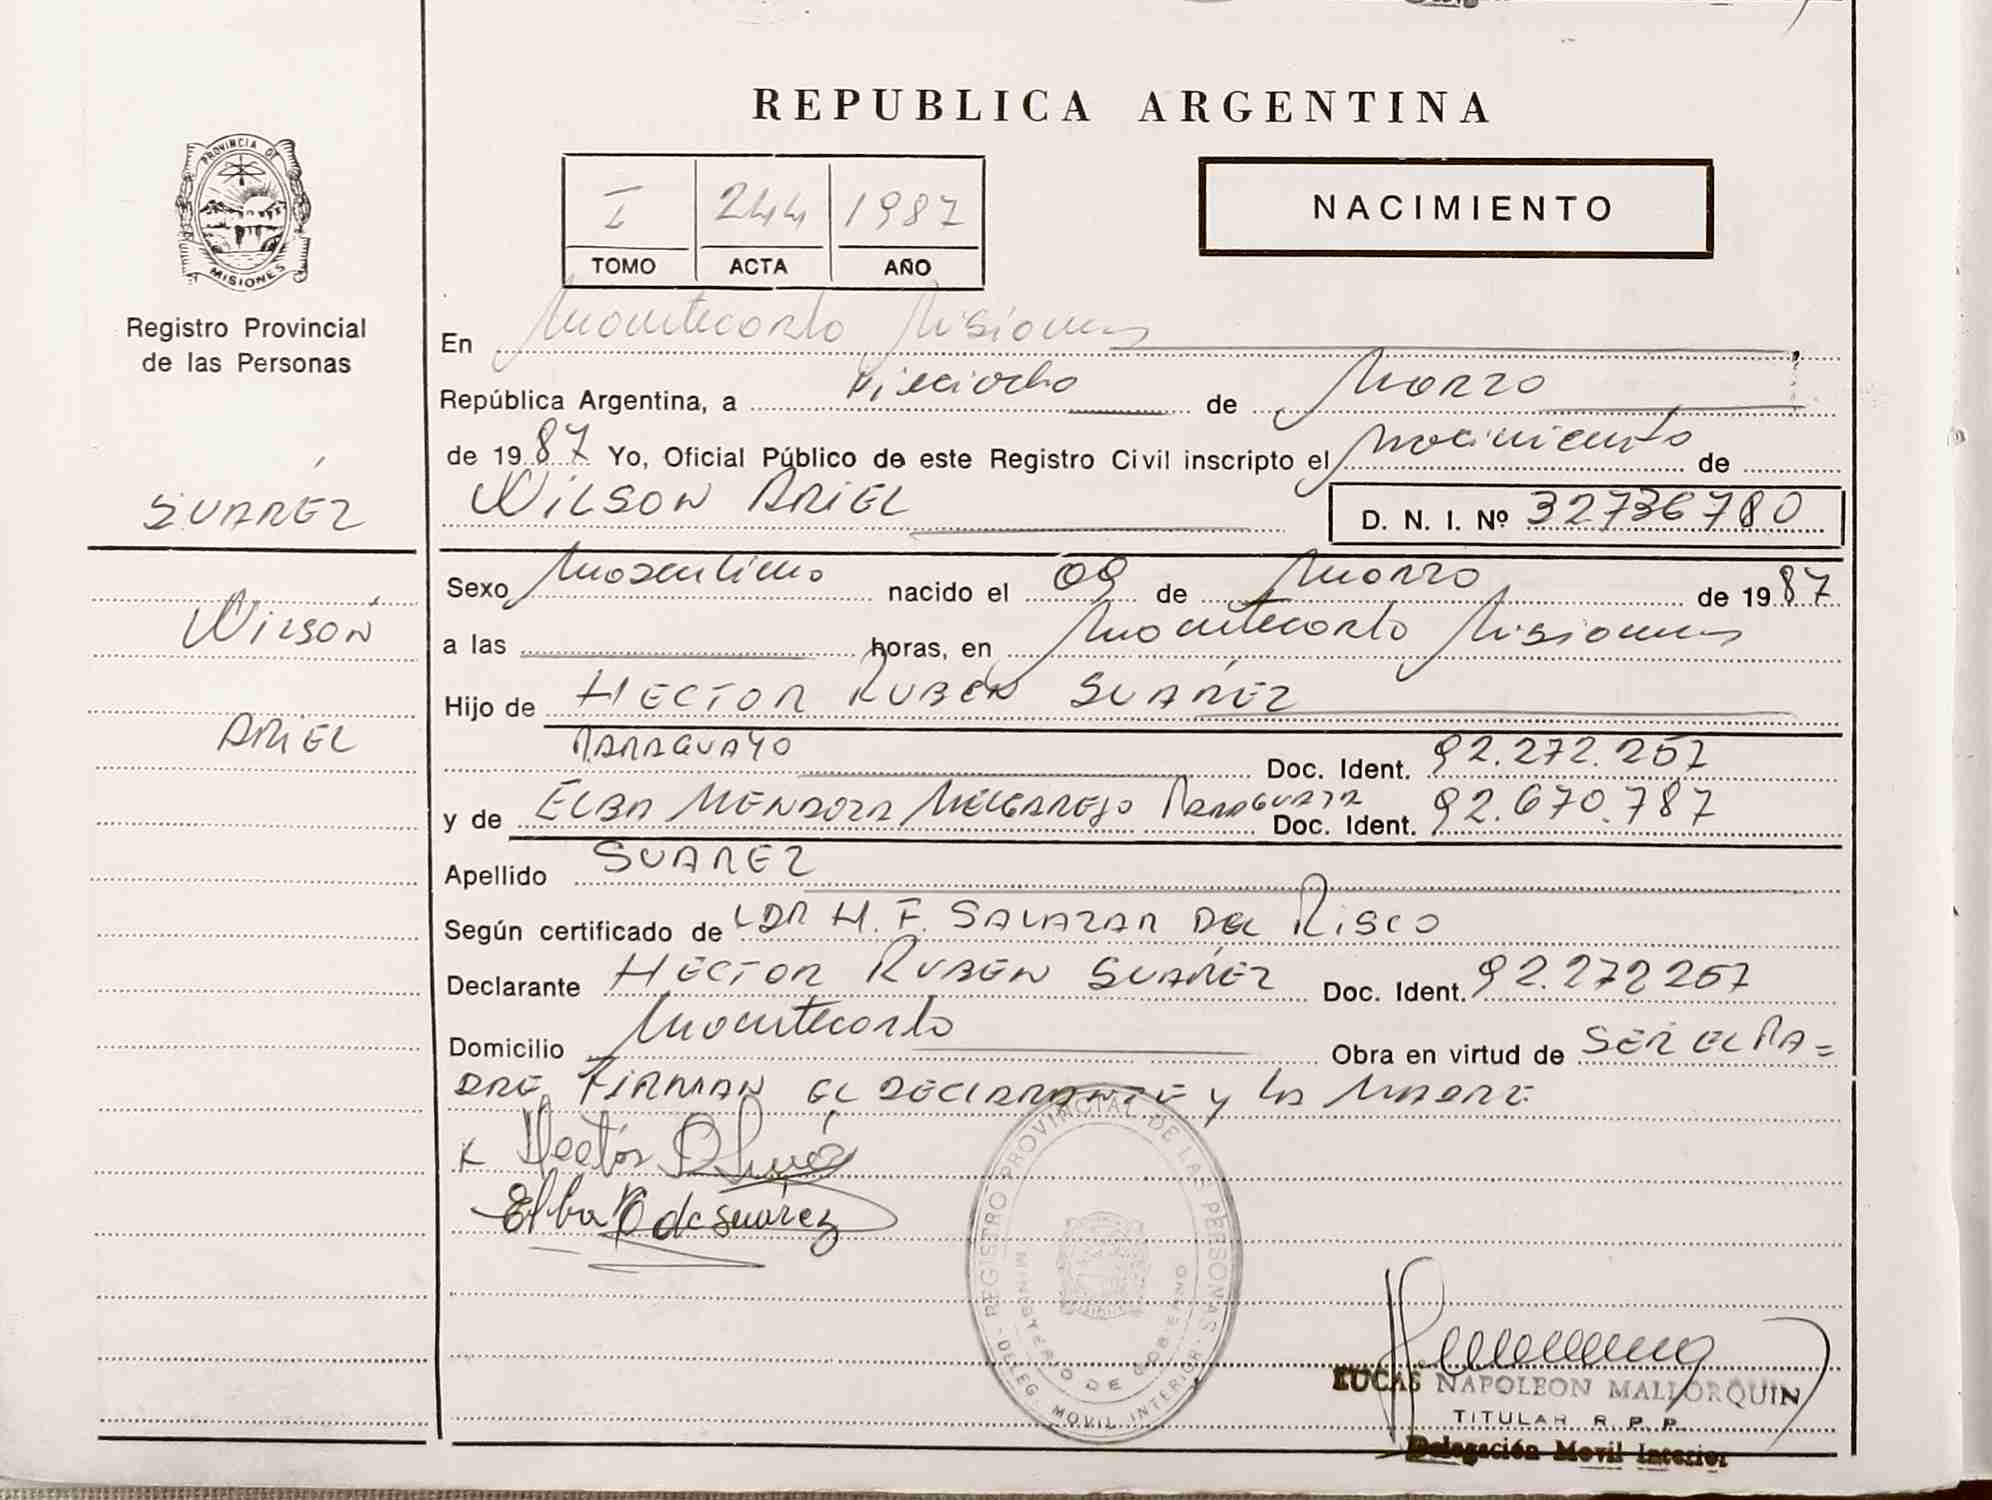 REPUBLICA ARGENTINA
PROVINCIA DE MISIONES
Registro Provincial
de las Personas
I 244 1987
TOMO ACTA AÑO
NACIMIENTO
En Montecarlo Misiones
República Argentina, a Dieciocho de Marzo
de 1987 Yo, Oficial Público de este Registro Civil inscripto el Nacimiento de
WILSON ARIEL D. N. I. Nº 32736780
SUAREZ
WILSON
ARIEL
Sexo Masculino nacido el 09 de Marzo de 1987
a las horas, en Montecarlo Misiones
Hijo de HECTOR RUBEN SUAREZ
PARAGUAYO Doc. Ident. 92.272.257
y de ELBA MENDOZA MELGAREJO PARAGUAYA Doc. Ident. 92.670.787
Apellido SUAREZ
Según certificado de DR H. F. SALAZAR DEL RISCO
Declarante HECTOR RUBEN SUAREZ Doc. Ident. 92.272257
Domicilio Montecarlo Obra en virtud de SER EL PA=
DRE, FIRMAN EL DECLARANTE y LA MADRE
Hector
Elba de Suarez
REGISTRO PROVINCIAL DE LAS PERSONAS
MINISTERIO DE GOBIERNO
DELEG. MOVIL INTERIOR
LUCAS NAPOLEON MALLORQUIN
TITULAR R. P. P.
Delegación Movil Interior